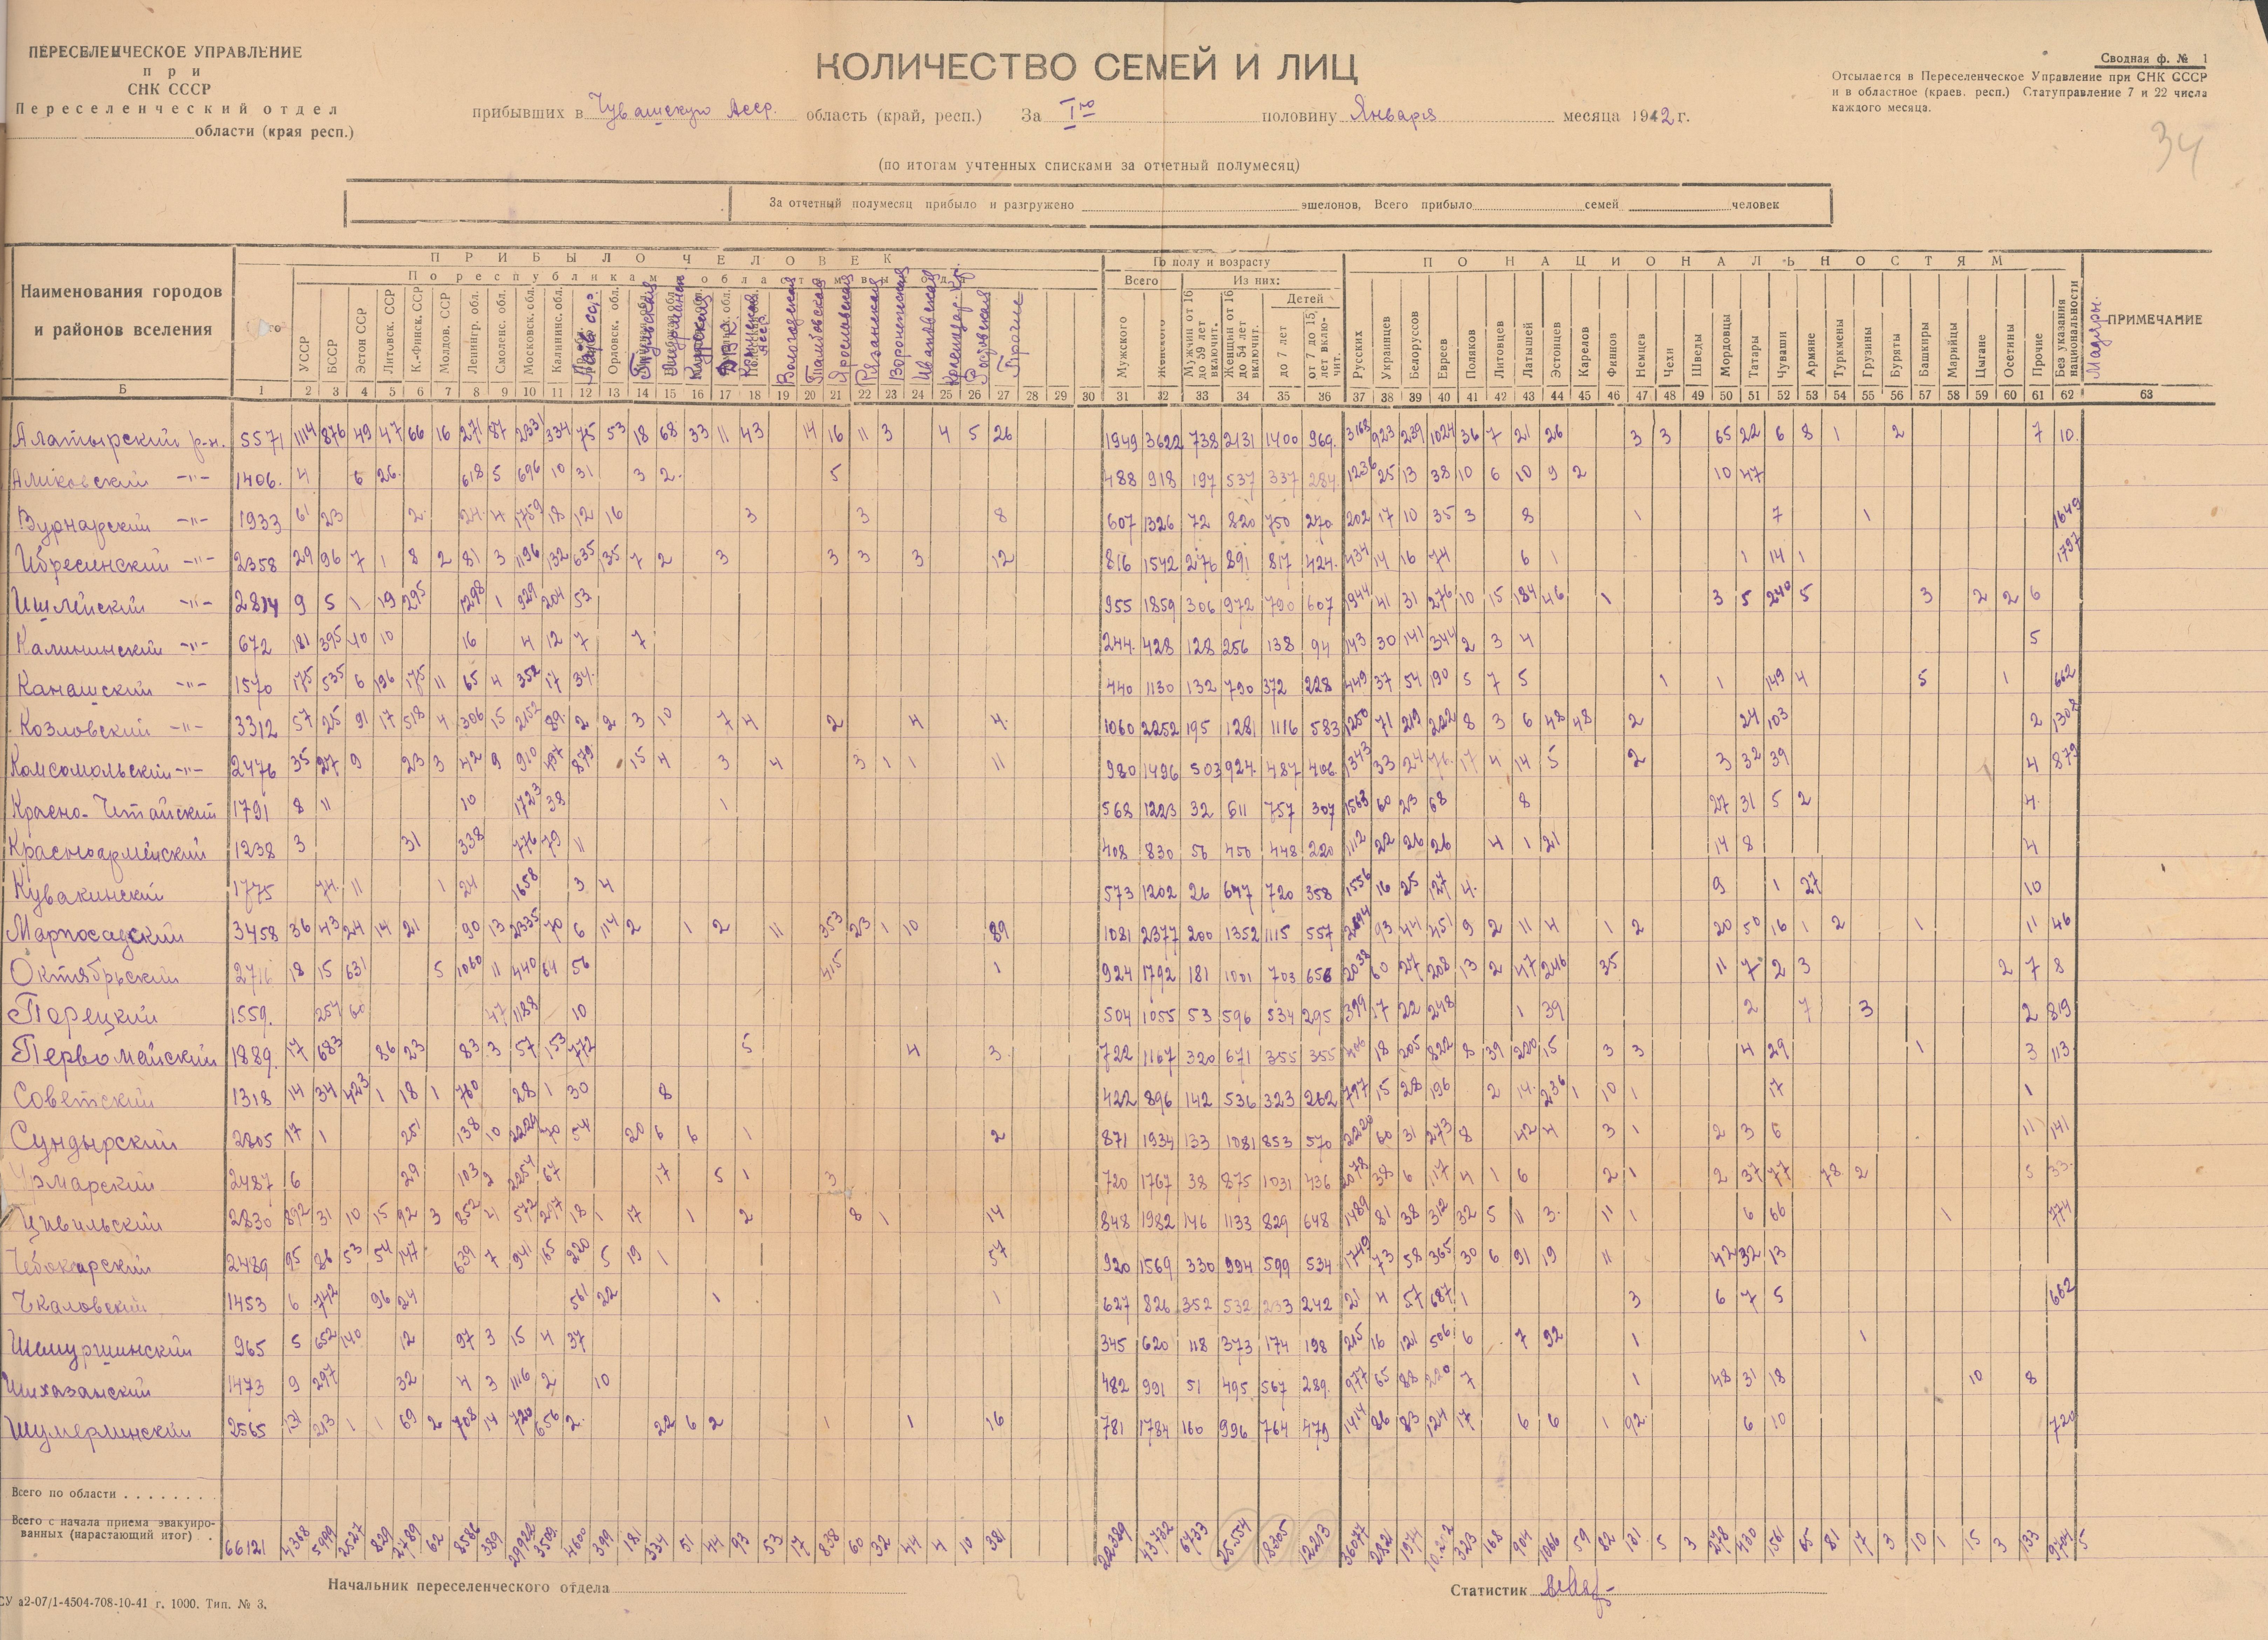 ПЕРЕСЕЛЕНЧЕСКОЕ УПРАВЛЕНИЕ
при
СНК СССР
Переселенческий отдел
области (края респ.)
КОЛИЧЕСТВО СЕМЕЙ И ЛИЦ
прибывших в Чувашскую Асср. область (край, респ.) За Iую половину Января месяца 1942 г.
(по итогам учтенных списками за отчетный полумесяц)
Сводная ф. № 1
Отсылается в Переселенческое Управление при СНК СССР
и в областное (краев. респ.) Статуправление 7 и 22 числа
каждого месяца.
34
За отчетный полумесяц прибыло и разгружено эшелонов, Всего прибыло семей человек
Наименования городов
и районов вселения
ПРИБЫЛО ЧЕЛОВЕК
По республикам и областям выхода
УССР
БССР
Эстон ССР
Литовск. ССР
К.-Финск. ССР
Молдов. ССР
Ленингр. обл.
Смоленс. обл.
Московск. обл.
Калининс. обл.
Орловск. обл.
Тульская
Курская
ДВК
Вологодская
Тамбовская
Ярославская
Рязанская
Воронежская
Ивановская
Ростовская
Прочие
По полу и возрасту
Всего
Из них:
Мужского
Женского
Мужчин от 16 до 59 лет включит.
Женщин от 16 до 54 лет включит.
Детей
до 7 лет
от 7 до 15 лет включит.
ПО НАЦИОНАЛЬНОСТЯМ
Русских
Украинцев
Белоруссов
Евреев
Поляков
Литовцев
Латышей
Эстонцев
Карелов
Финнов
Немцев
Чехи
Шведы
Мордовцы
Татары
Чуваши
Армяне
Туркмены
Грузины
Буряты
Башкиры
Марийцы
Цыгане
Осетины
Прочие
Без указания национальности
Мадяры
ПРИМЕЧАНИЕ
Б 1 2 3 4 5 6 7 8 9 10 11 12 13 14 15 16 17 18 19 20 21 22 23 24 25 26 27 28 29 30 31 32 33 34 35 36 37 38 39 40 41 42 43 44 45 46 47 48 49 50 51 52 53 54 55 56 57 58 59 60 61 62 63
Алатырский р-н. 5571 1114 876 49 47 66 16 271 87 2331 334 75 53 18 68 33 11 43 14 16 11 3 4 5 26 1949 3622 738 2131 1400 969 3168 923 239 1024 36 7 21 26 3 3 65 22 6 8 1 2 7 10
Аликовский -"- 1406. 4 6 26 618 5 696 10 31 3 2 5 488 918 197 537 337 284 1236 25 13 38 10 6 10 9 2 10 47
Вурнарский -"- 1933 61 23 2 24 4 1759 18 12 16 3 3 8 607 1326 72 820 750 270 202 17 10 35 3 8 1 7 1 1649
Ибресинский -"- 2358 29 96 7 1 8 2 81 3 1196 132 635 135 7 2 3 3 3 3 12 816 1542 276 891 817 424 434 14 16 74 6 1 1 14 1 1797
Ишлейский -"- 2814 9 5 1 19 295 1298 1 929 204 53 955 1859 306 972 790 607 1944 41 31 276 10 15 184 46 1 3 5 240 5 3 2 2 6
Калининский -"- 672 181 395 40 10 16 4 12 7 7 244 428 128 256 138 94 143 30 141 344 2 3 4 5
Канашский -"- 1570 175 535 6 196 175 11 65 4 352 17 34 440 1130 132 790 372 228 449 37 54 190 5 7 5 1 1 149 4 5 1 662
Козловский -"- 3312 57 25 91 17 518 4 306 15 2152 89 2 2 3 10 7 4 2 4 4 1060 2252 195 1281 1116 583 1250 71 219 222 8 3 6 48 48 2 24 103 2 1308
Комсомольский -"- 2476 35 27 9 23 3 42 9 910 497 879 15 4 3 4 3 1 1 11 980 1496 503 924 487 406 1343 33 24 76 17 4 14 5 2 3 32 39 4 879
Красно-Читайский 1791 8 11 10 1723 38 1 568 1223 32 611 757 307 1563 60 23 68 8 27 31 5 2 4
Красноармейский 1238 3 31 338 776 79 11 408 830 56 450 448 220 1112 22 26 26 4 1 21 14 8 4
Кувакинский 1775 74 11 1 24 1658 3 4 573 1202 26 647 720 358 1556 16 25 127 4 9 1 27 10
Марпосадский 3458 36 43 24 14 21 90 13 2335 70 6 114 2 1 2 11 353 23 1 10 89 1081 2377 200 1352 1115 557 2694 93 44 451 9 2 11 4 1 2 20 50 16 1 2 1 11 46
Октябрьский 2716 18 15 631 5 1060 11 440 64 56 415 1 924 1792 181 1001 703 656 2033 60 27 208 13 2 47 246 35 11 7 2 3 2 7 8
Порецкий 1559. 257 60 47 1188 10 504 1055 53 596 534 295 399 17 22 248 1 39 2 7 3 2 819
Первомайский 1889. 17 683 86 23 83 3 57 153 772 5 4 3 722 1167 320 671 355 355 18 205 822 8 39 220 15 3 3 4 29 1 3 113
Советский 1318 14 34 423 1 18 1 760 28 1 30 8 422 896 142 536 323 262 797 15 28 196 2 14 236 1 10 1 17 1
Сундырский 2805 17 1 251 138 10 2224 70 54 20 6 6 1 2 871 1934 133 1081 853 570 2220 60 31 273 8 42 4 3 1 2 3 6 11 141
Урмарский 2487 6 29 103 2 2254 67 17 5 1 3 720 1767 38 875 1031 436 2078 38 6 117 4 1 6 2 1 2 37 77 78 2 5 33
Цивильский 2830 892 31 10 15 92 3 852 4 572 297 18 1 17 1 2 8 1 14 848 1982 146 1133 829 648 1489 81 38 312 32 5 11 3 11 1 6 66 1 774
Чебоксарский 2489 95 26 53 54 147 639 7 941 165 220 5 19 1 57 920 1569 330 994 599 534 1749 73 58 365 30 6 91 19 11 42 32 13
Чкаловский 1453 6 742 96 24 561 22 1 1 627 826 352 532 233 242 21 4 57 687 1 3 6 7 5 662
Шемуршинский 965 5 652 140 12 97 3 15 4 37 345 620 118 373 174 198 215 16 121 506 6 7 92 1 1
Шихазанский 1473 9 297 32 4 3 1116 2 10 482 991 51 495 567 289 977 65 88 220 7 1 48 31 18 10 8
Шумерлинский 2565 131 213 1 1 69 2 708 14 720 656 2 22 6 2 1 1 16 781 1784 160 996 764 479 1414 26 83 124 17 6 6 1 92 6 10 720
Всего по области
Всего с начала приема эвакуированных (нарастающий итог) 66121 4368 5999 2527 829 2489 62 8586 389 29922 3509 4600 399 181 334 51 44 93 53 17 838 60 32 44 4 10 381 22389 43732 6733 25554 18305 12213 36077 2821 1974 323 168 904 1066 59 82 131 5 3 278 430 1561 65 81 17 3 10 1 15 3 133 9704 5
Начальник переселенческого отдела
Статистик
СУ а2-07/1-4504-708-10-41 г. 1000. Тип. № 3.